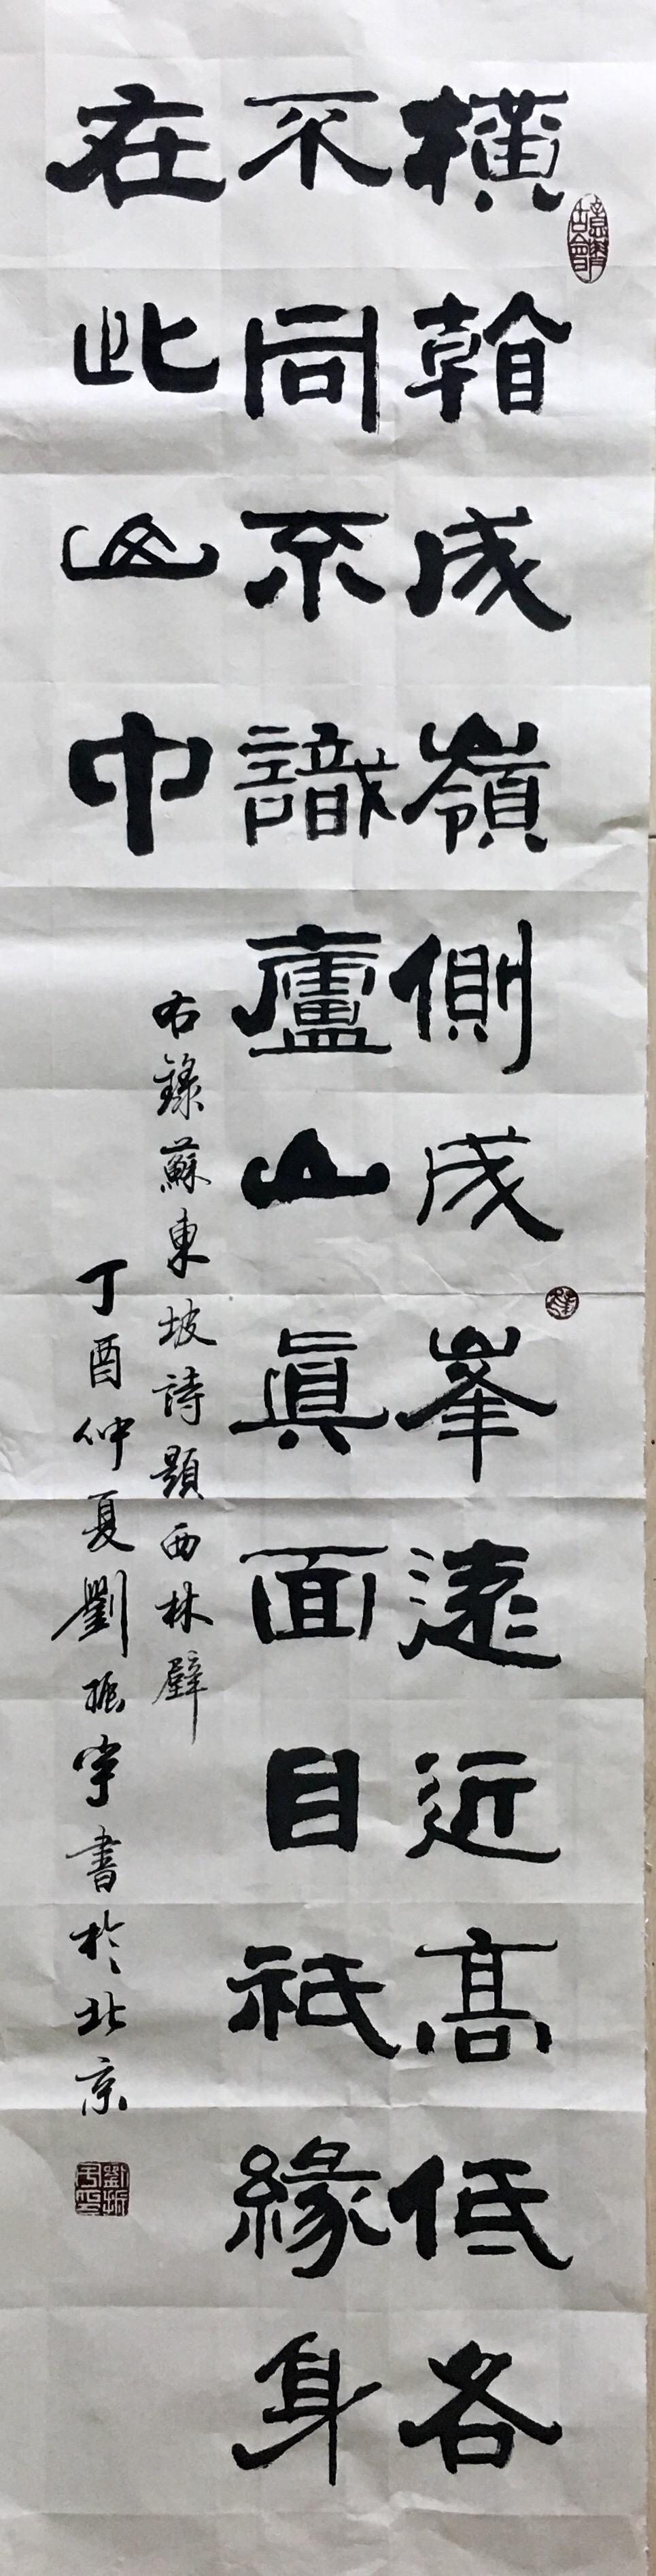 橫看成嶺側成峯遠近高低各
不同不識廬山眞面目祇緣身
在此山中
右錄蘇東坡詩題西林壁
丁酉仲夏劉振宇書於北京